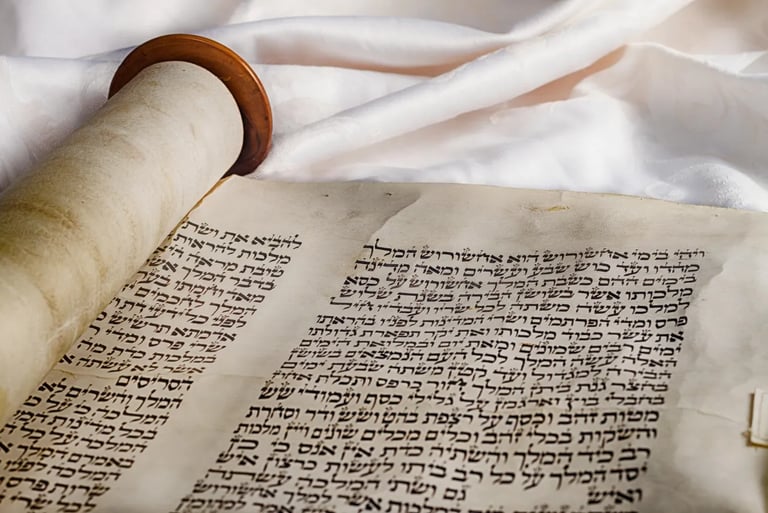 ויהי בימי אחשורוש הוא אחשורוש המלך
מהדו ועד כוש שבע ועשרים ומאה מדינה
בימים ההם כשבת המלך אחשורוש על כסא
מלכותו אשר בשושן הבירה בשנת שלוש
למלכו עשה משתה לכל שריו ועבדיו חיל
פרס ומדי הפרתמים ושרי המדינות לפניו בהראתו
את עשר כבוד מלכותו ואת יקר תפארת גדולתו
ימים רבים שמונים ומאת יום ובמלואת הימים
האלה עשה המלך לכל העם הנמצאים בשושן
הבירה למגדול ועד קטן משתה שבעת ימים
בחצר גנת ביתן המלך חור כרפס ותכלת אחוז
בחבלי בוץ וארגמן על גלילי כסף ועמודי שש
מטות זהב וכסף על רצפת בהט ושש ודר וסחרת
והשקות בכלי זהב וכלים מכלים שונים ויין מלכות
רב כיד המלך והשתיה כדת אין אנס כי כן
יסד המלך על כל רב ביתו לעשות כרצון איש
ואיש גם ושתי המלכה עשתה
אשר למלך אחשורוש
להביא את ושתי
מלכות להראות
טובת מראה היא
בדבר המלך אשר
מאד וחמתו
המלך לחכמים
לפני כל ידעי דת
אדמתא תרשיש
פרס ומדי
במלכות כדת מה
אשר לא עשתה
הסריסים
המלך והשרים
המלך כי על כל
בכל מדינות המלך
המלכה על כל
באמרם המלך
המלכה לפניו
שרות פרס